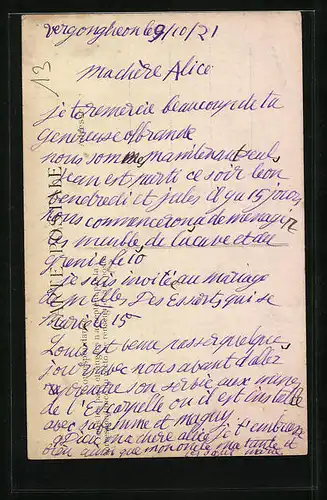 vergongheon le 9/10/21
13
ma chère Alice
je te remercie beaucoup de ta
genereuse ofrande
nous somme maintenant seuls
jean est parti ce soir leon
vendredi et jules il y a 15 jours
nous commencerons a demenager
les meuble de la cave et du
grenié
je suis invité au mariage
de Elle Des Essarts qui se
marie le 15
Louis est venu passer quelques
jours avec nous avant d'aller
reprendre son servic aux mines
de l'Escarpelle ou il est installé
avec sa femme et
ma chère alice je t'embrasse
ainsi que mon oncle ma tante et